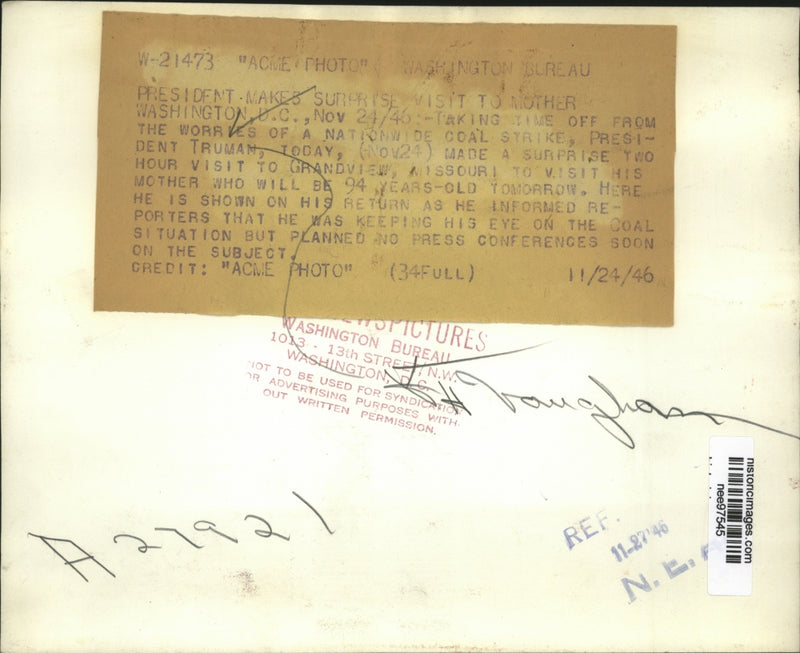 W-21473 "ACME PHOTO" WASHINGTON BUREAU
PRESIDENT MAKES SURPRISE VISIT TO MOTHER
WASHINGTON, D.C., NOV 24/46:-TAKING TIME OFF FROM
THE WORRIES OF A NATIONWIDE COAL STRIKE, PRESI-
DENT TRUMAN, TODAY, (NOV24) MADE A SURPRISE TWO
HOUR VISIT TO GRANDVIEW, MISSOURI TO VISIT HIS
MOTHER WHO WILL BE 94 YEARS-OLD TOMORROW. HERE
HE IS SHOWN ON HIS RETURN AS HE INFORMED RE-
PORTERS THAT HE WAS KEEPING HIS EYE ON THE COAL
SITUATION BUT PLANNED NO PRESS CONFERENCES SOON
ON THE SUBJECT.
CREDIT: "ACME PHOTO" (34FULL) 11/24/46
NEWSPICTURES
WASHINGTON BUREAU
1013 - 13th STREET, N.W.
WASHINGTON, D.C.
NOT TO BE USED FOR SYNDICATION
OR ADVERTISING PURPOSES WITH-
OUT WRITTEN PERMISSION.
Vaughan
A27921
REF.
11-27'46
N. E. A
historicimages.com
nee97545